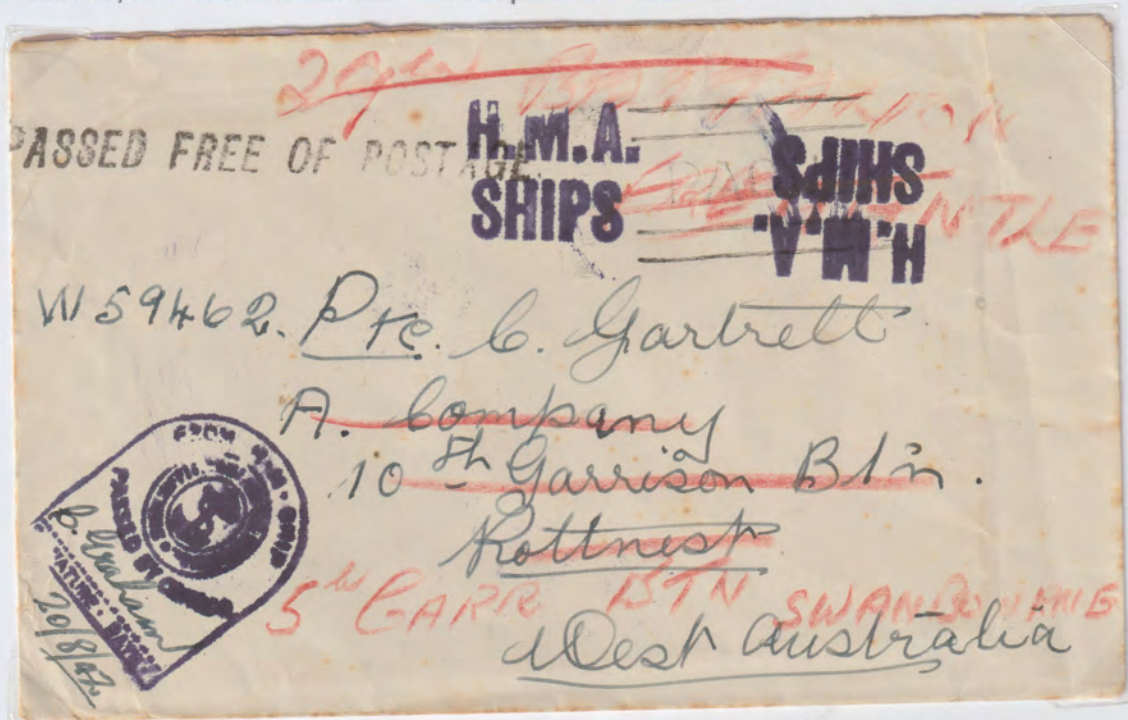 29th BATTALION
PASSED FREE OF POSTAGE.
H.M.A.
SHIPS
H.M.A.
SHIPS
W59462. Pte. C. Gartrell
A. Company
10th Garrison Btn.
Rottnest
5th GARR BTN SWANBOURNE
West Australia
FROM H.M.A. SHIP
PASSED BY CENSOR
C. Graham
SIGNATURE · DATE
20/8/42